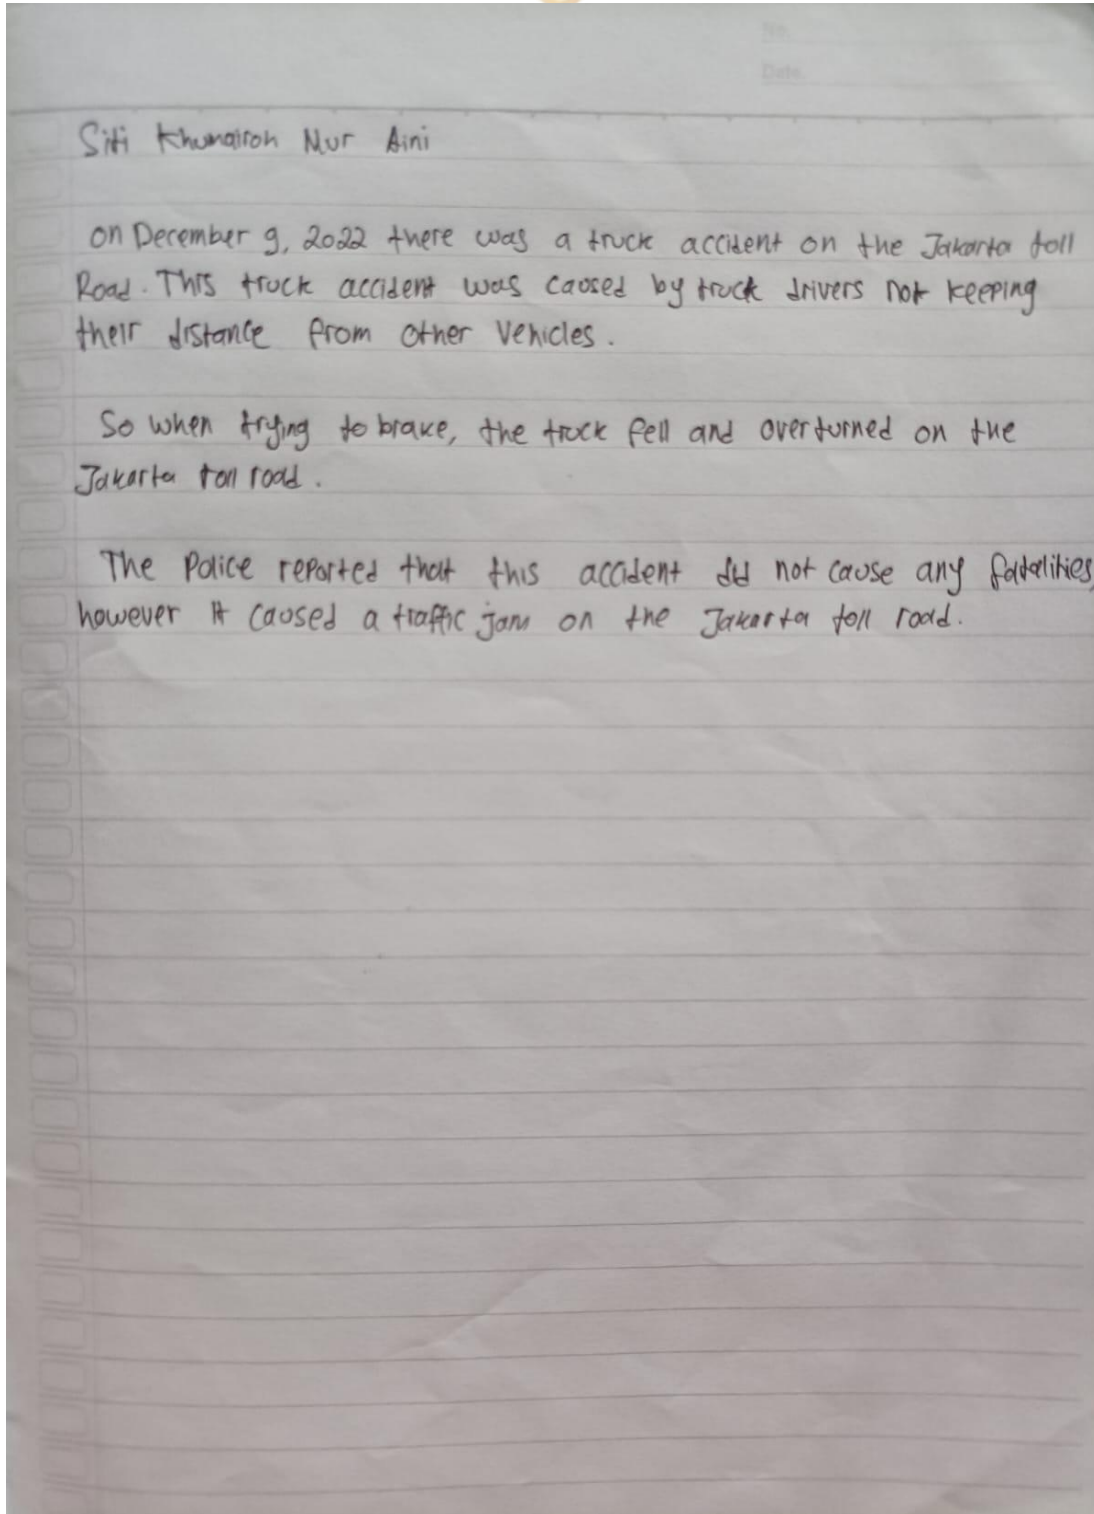 No.
Date.
Siti Khumairoh Nur Aini
on December 9, 2022 there was a truck accident on the Jakarta toll
Road. This truck accident was caused by truck drivers not keeping
their distance from other Vehicles.
So when trying to brake, the truck fell and overturned on the
Jakarta toll road.
The Police reported that this accident did not cause any fatalities,
however It caused a traffic jam on the Jakarta toll road.